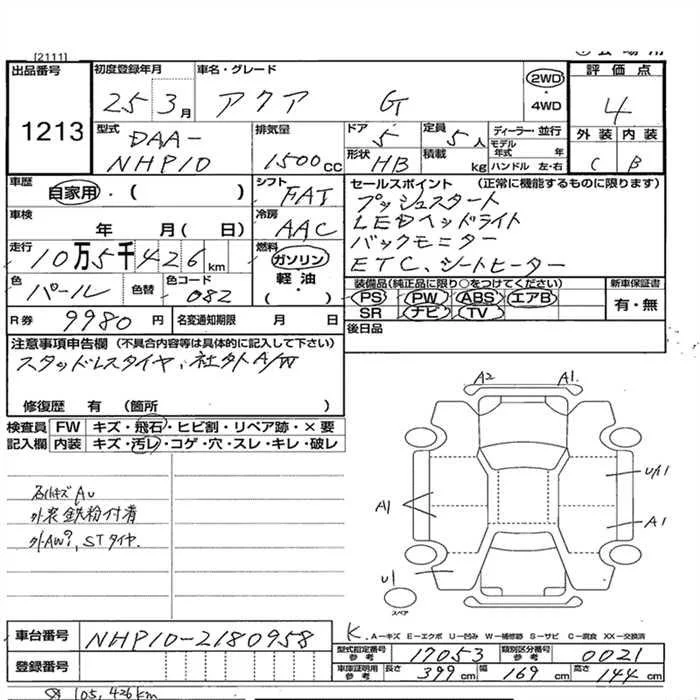 [2111]
出品番号 1213
初度登録年月 25 3月
車名・グレード アクア G
2WD・4WD
評価点 4
外装 C 内装 B
型式 DAA-NHP10
排気量 1500cc
ドア 5
形状 HB
定員 5人
積載 kg
ディーラー・並行
モデル年式 年
ハンドル 左・右
車歴 自家用・( )
シフト FAT
セールスポイント (正常に機能するものに限ります)
プッシュスタート
LEDヘッドライト
バックモニター
ETC、シートヒーター
車検 年 月( 日)
冷房 AAC
走行 10万5千426km
燃料 ガソリン・軽油・( )
色 パール 色替
色コード 082
装備品(純正品に限り○をつけてください)
PS PW ABS エアB
SR ナビ TV
新車保証書 有・無
R券 9980円
名変通知期限 月 日
後日品
注意事項申告欄 (不具合内容等は具体的に記入して下さい)
スタッドレスタイヤ、社外A/W
修復歴 有 (箇所 )
検査員記入欄
FW キズ・飛石・ヒビ割・リペア跡・×要
内装 キズ・汚レ・コゲ・穴・スレ・キレ・破レ
外装鉄粉付着
A2 A1
A1
U/A1
A1
U1
スペア
車台番号 NHP10-2180958
登録番号
K.
A-キズ E-エクボ U-凹み W-補修跡 S-サビ C-腐食 XX-交換済
型式指定番号 参考 17053
類別区分番号 参考 0021
車庫証明用 参考 長さ 399cm 幅 169cm 高さ 144cm
105,426km